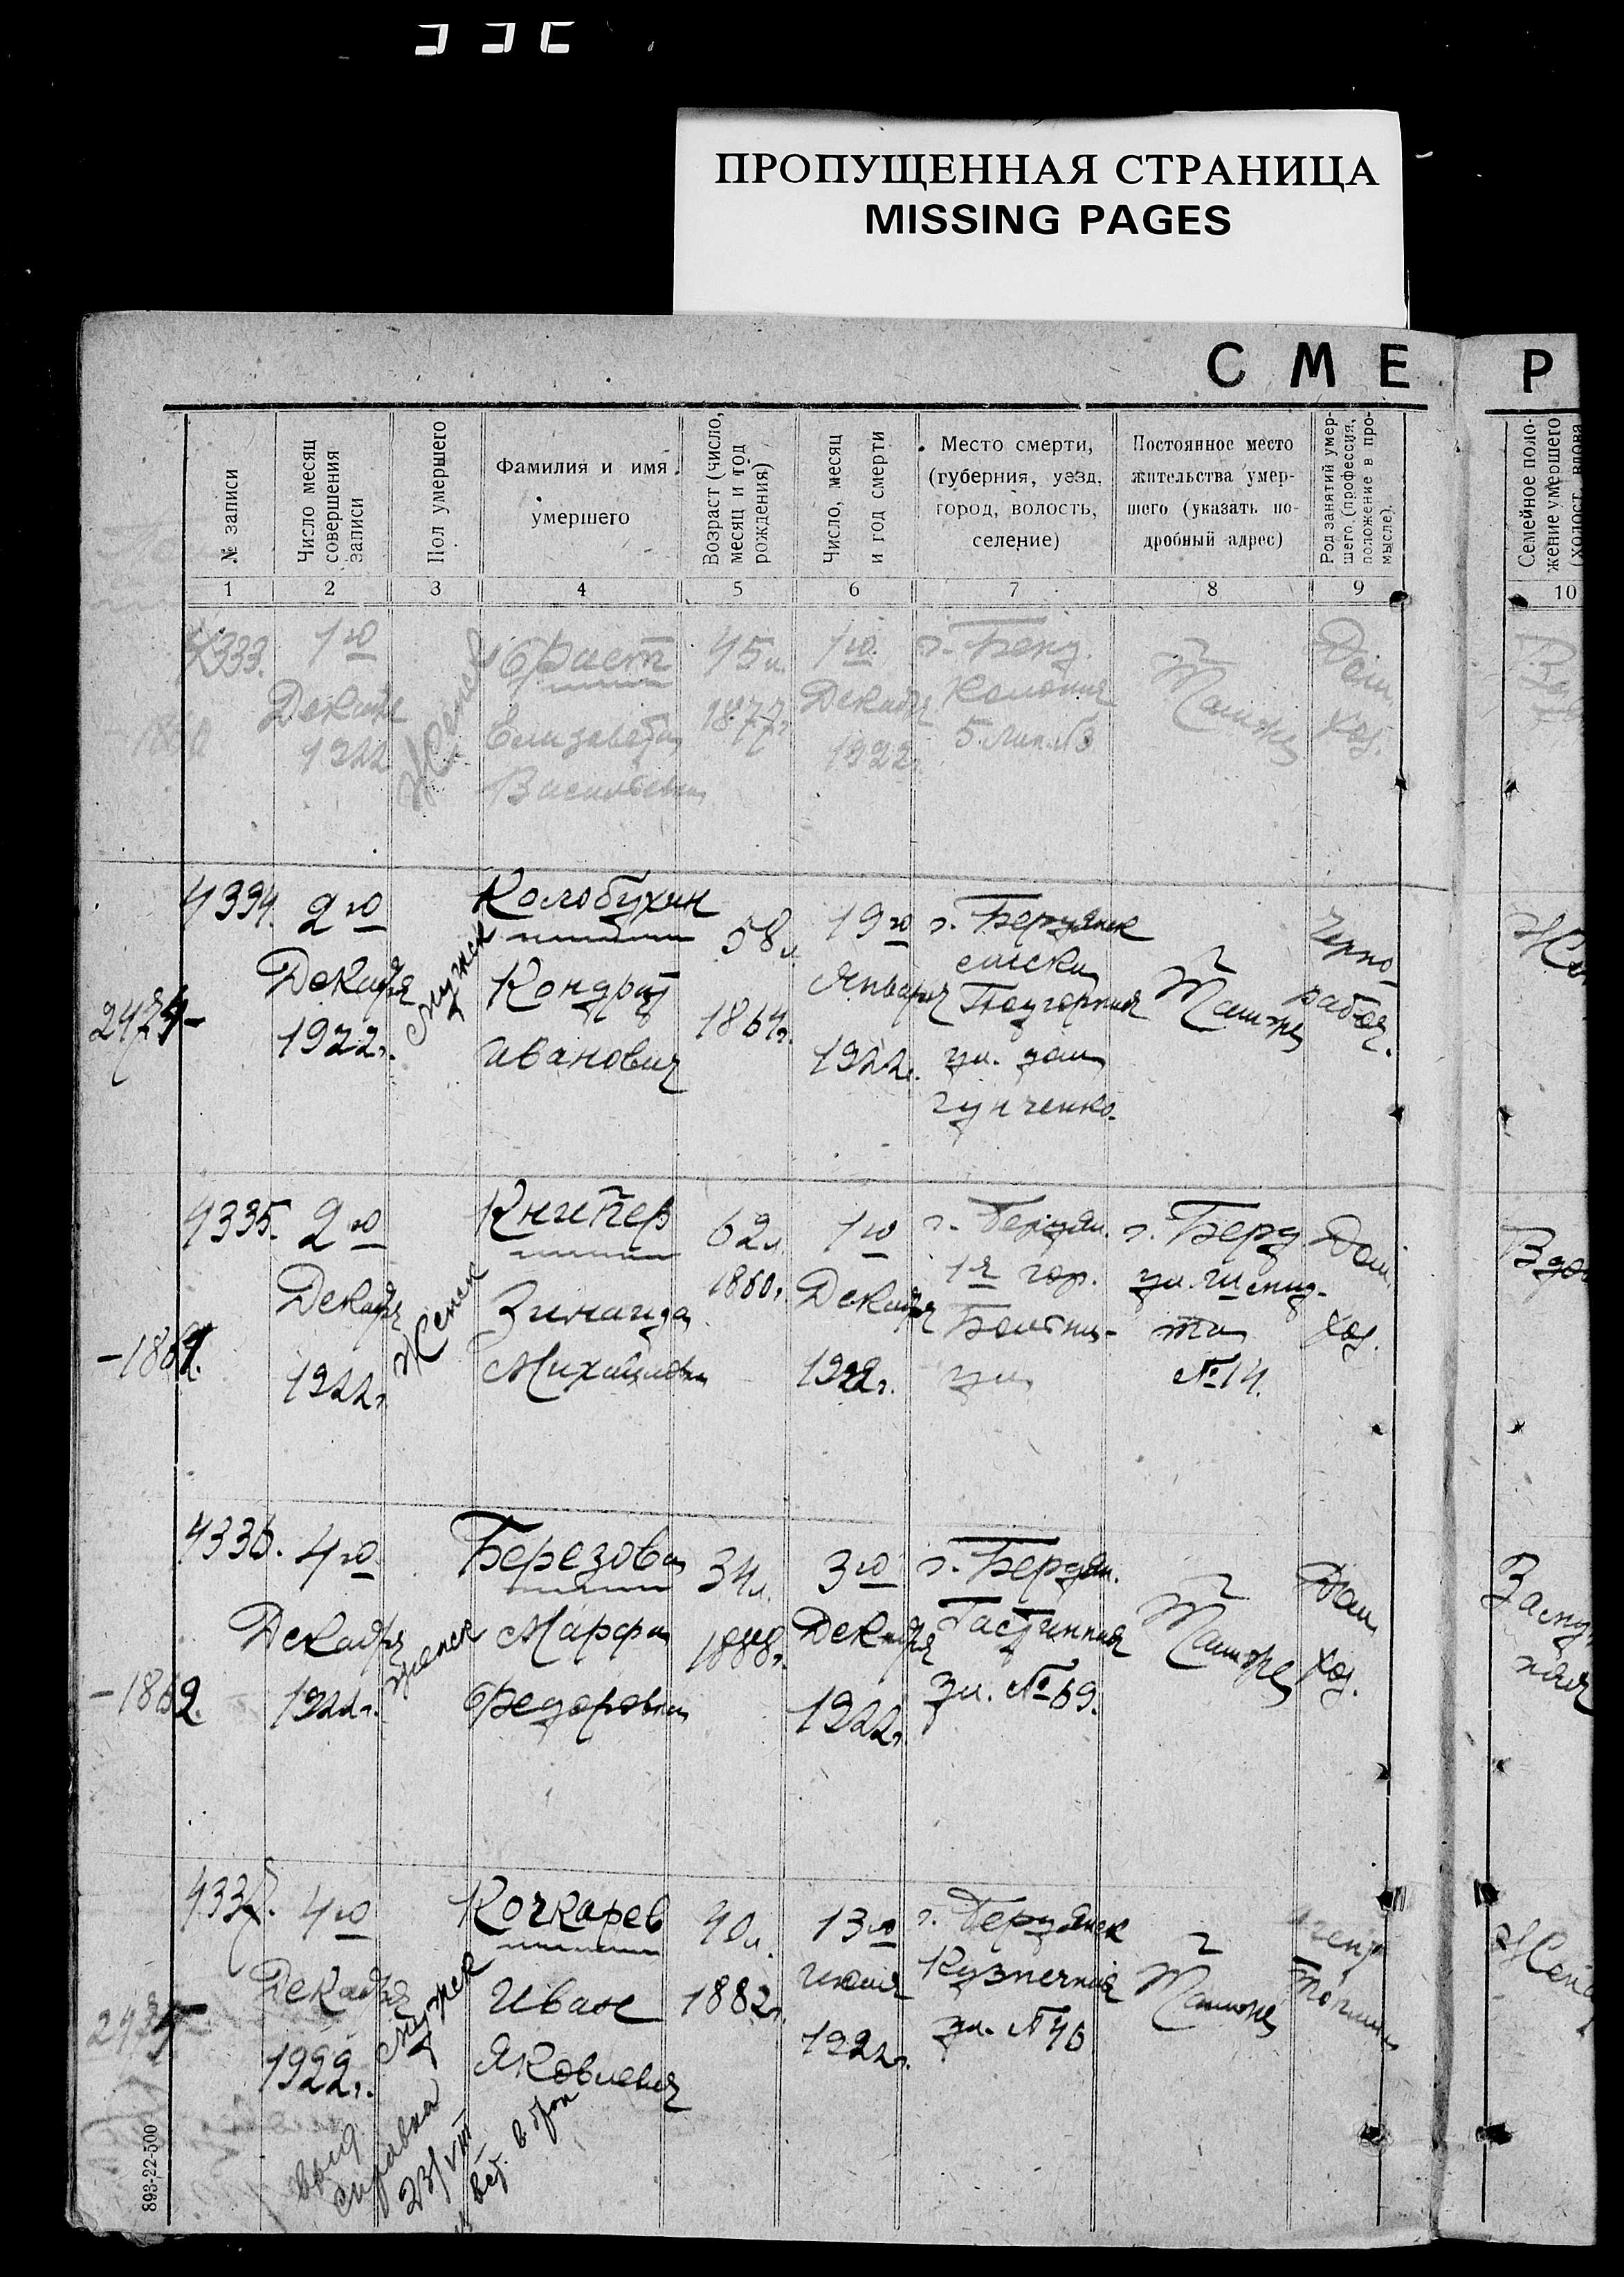 ПРОПУЩЕННАЯ СТРАНИЦА
MISSING PAGES
СМЕ
Р
№ записи
Число месяц
совершения
записи
Пол умершего
Фамилия и имя
умершего
Возраст (число,
месяц и год
рождения)
Число, месяц
и год смерти
Место смерти,
(губерния, уезд,
город, волость,
селение)
Постоянное место
жительства умер-
шего (указать по-
дробный адрес)
Род занятий умер-
шего (профессия,
положение в про-
мысле).
Семейное поло-
жение умершего
(холост, вдова
1 2 3 4 5 6 7 8 9 10
4333.
1го
Декабря
1922
Женск
Елизавета
Васильевна
45 л.
1877г
1го
Декабря
1922г.
Колония
5 Лин. №3
Там же
Дом.
хоз.
4334.
2го
Декабря
1922г.
Мужск
Колобухин
Кондрат
Иванович
58 л.
1864г.
19го
Января
1922г.
г. Бердянск
Подгорная
ул. дом
Там же
Черно
рабоч.
4335.
2го
Декабря
1922г.
Женск
Книпер
Зинаида
Михайловна
62 л.
1860г.
1го
Декабря
1922г.
г. Бердян.
1я гор.
Больни-
ца
г. Берд.
ул. Шмид-
та
№ 14.
Дом.
хоз.
Вдо
4336.
4го
Декабря
1922г.
женск
Березова
Марфа
Федоровна
34 л.
1888г.
3го
Декабря
1922г.
г. Бердян.
Гостинная
ул. № 69.
Там же
Дом
хоз.
Замуж
няя
-1862.
4337.
4го
Декабря
1922г.
Мужск
Кочкарев
Иван
Яковлевич
40 л.
1882г.
13го
Июля
1922г.
г. Бердянск
Кузнечная
ул. № 46
Там же
Жена
выд.
справка
23/VIII
893-22-500